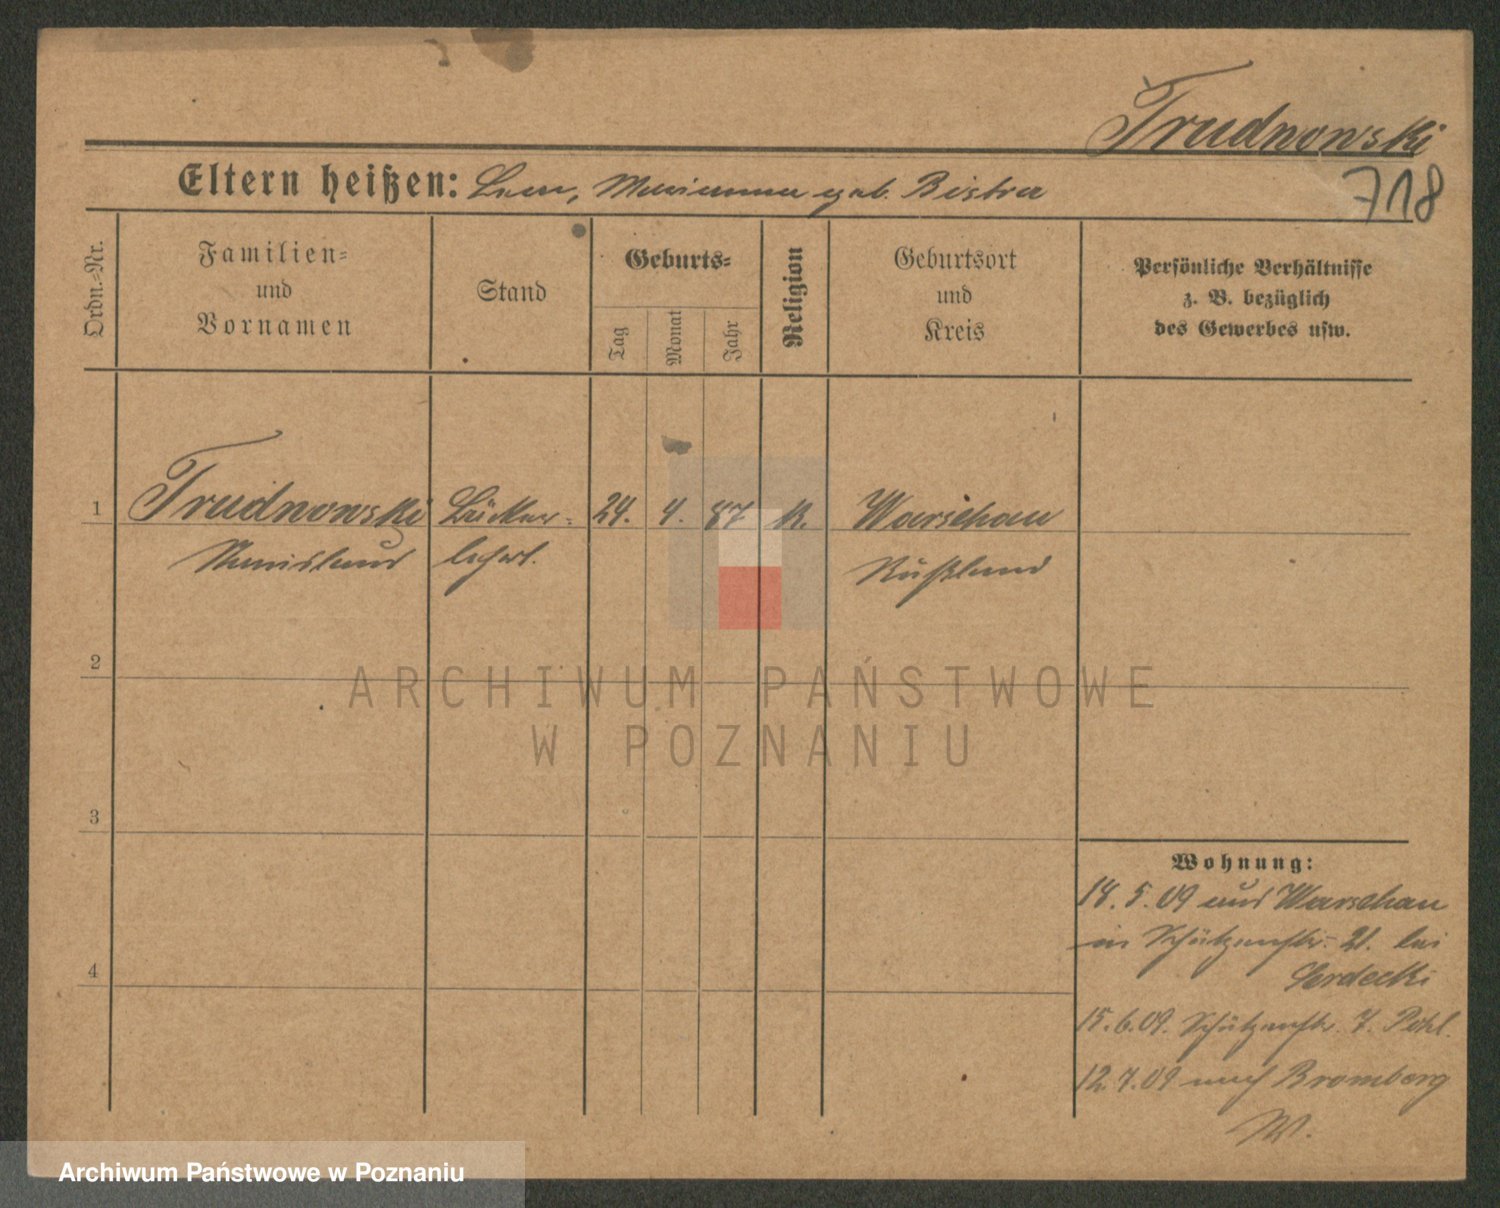 Trudnowski
718
Eltern heißen: Marianna geb. Bistra
Ordn.-Nr.
Familien-
und
Vornamen
Stand
Geburts-
Tag
Monat
Jahr
Religion
Geburtsort
und
Kreis
Persönliche Verhältnisse
z. B. bezüglich
des Gewerbes usw.
1
Trudnowski Bäcker- 24. 4. 87 k. Warschau
Russland
2
3
4
Wohnung:
14. 5. 09 aus Warschau
in Schützenstr. 21. bei
Serdecki
15. 6. 09. Schützenstr. 7.
12. 7. 09 nach Bromberg
W.
ARCHIWUM PAŃSTWOWE
W POZNANIU
Archiwum Państwowe w Poznaniu